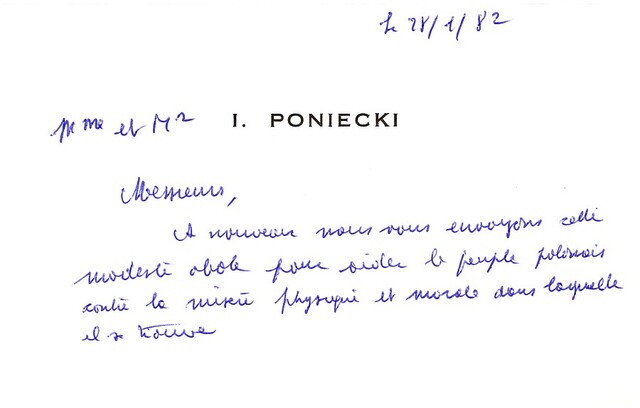 le 28/1/82
Mme et Mr I. PONIECKI
Messieurs,
A nouveau nous vous envoyons cette
modeste obole pour aider le peuple polonais
contre la misère physique et morale dans laquelle
il se trouve